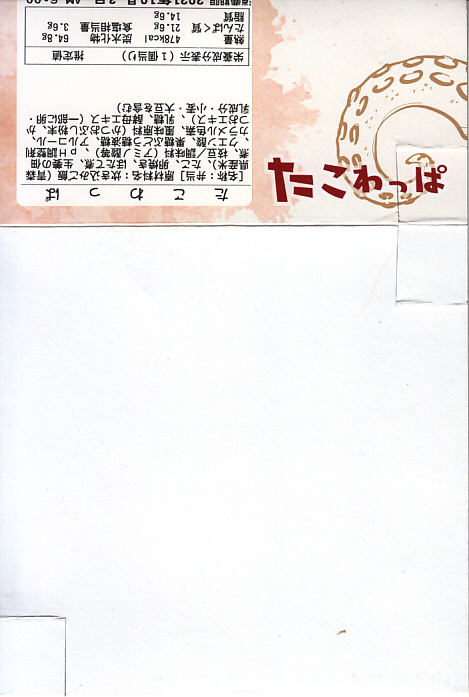 たこわっぱ
たこわっぱ
[名称：弁当] 原材料名：炊き込みご飯（青森
県産米）、たこ、卵焼き、ほたて煮、生姜の佃
煮、枝豆／調味料（アミノ酸等）、ｐＨ調整剤
、クエン酸、果糖ぶどう糖液糖、アルコール、
カラメル色素、風味原料（かつおぶし粉末、か
つおエキス）、乳糖、酵母エキス（一部に卵・
乳成分・小麦・大豆を含む）
栄養成分表示（１個当り） 推定値
熱量 478kcal 炭水化物 64.8g
たんぱく質 21.6g 食塩相当量 3.6g
脂質 14.6g